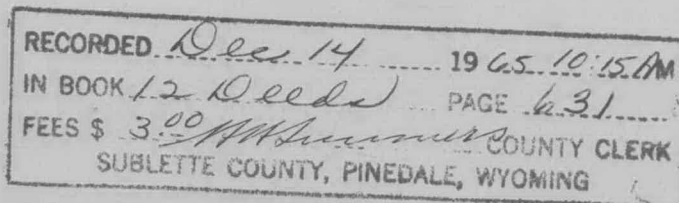 RECORDED Dec 14 1965 10:15 AM
IN BOOK 12 Deeds PAGE 631
FEES $ 3.00 COUNTY CLERK
SUBLETTE COUNTY, PINEDALE, WYOMING